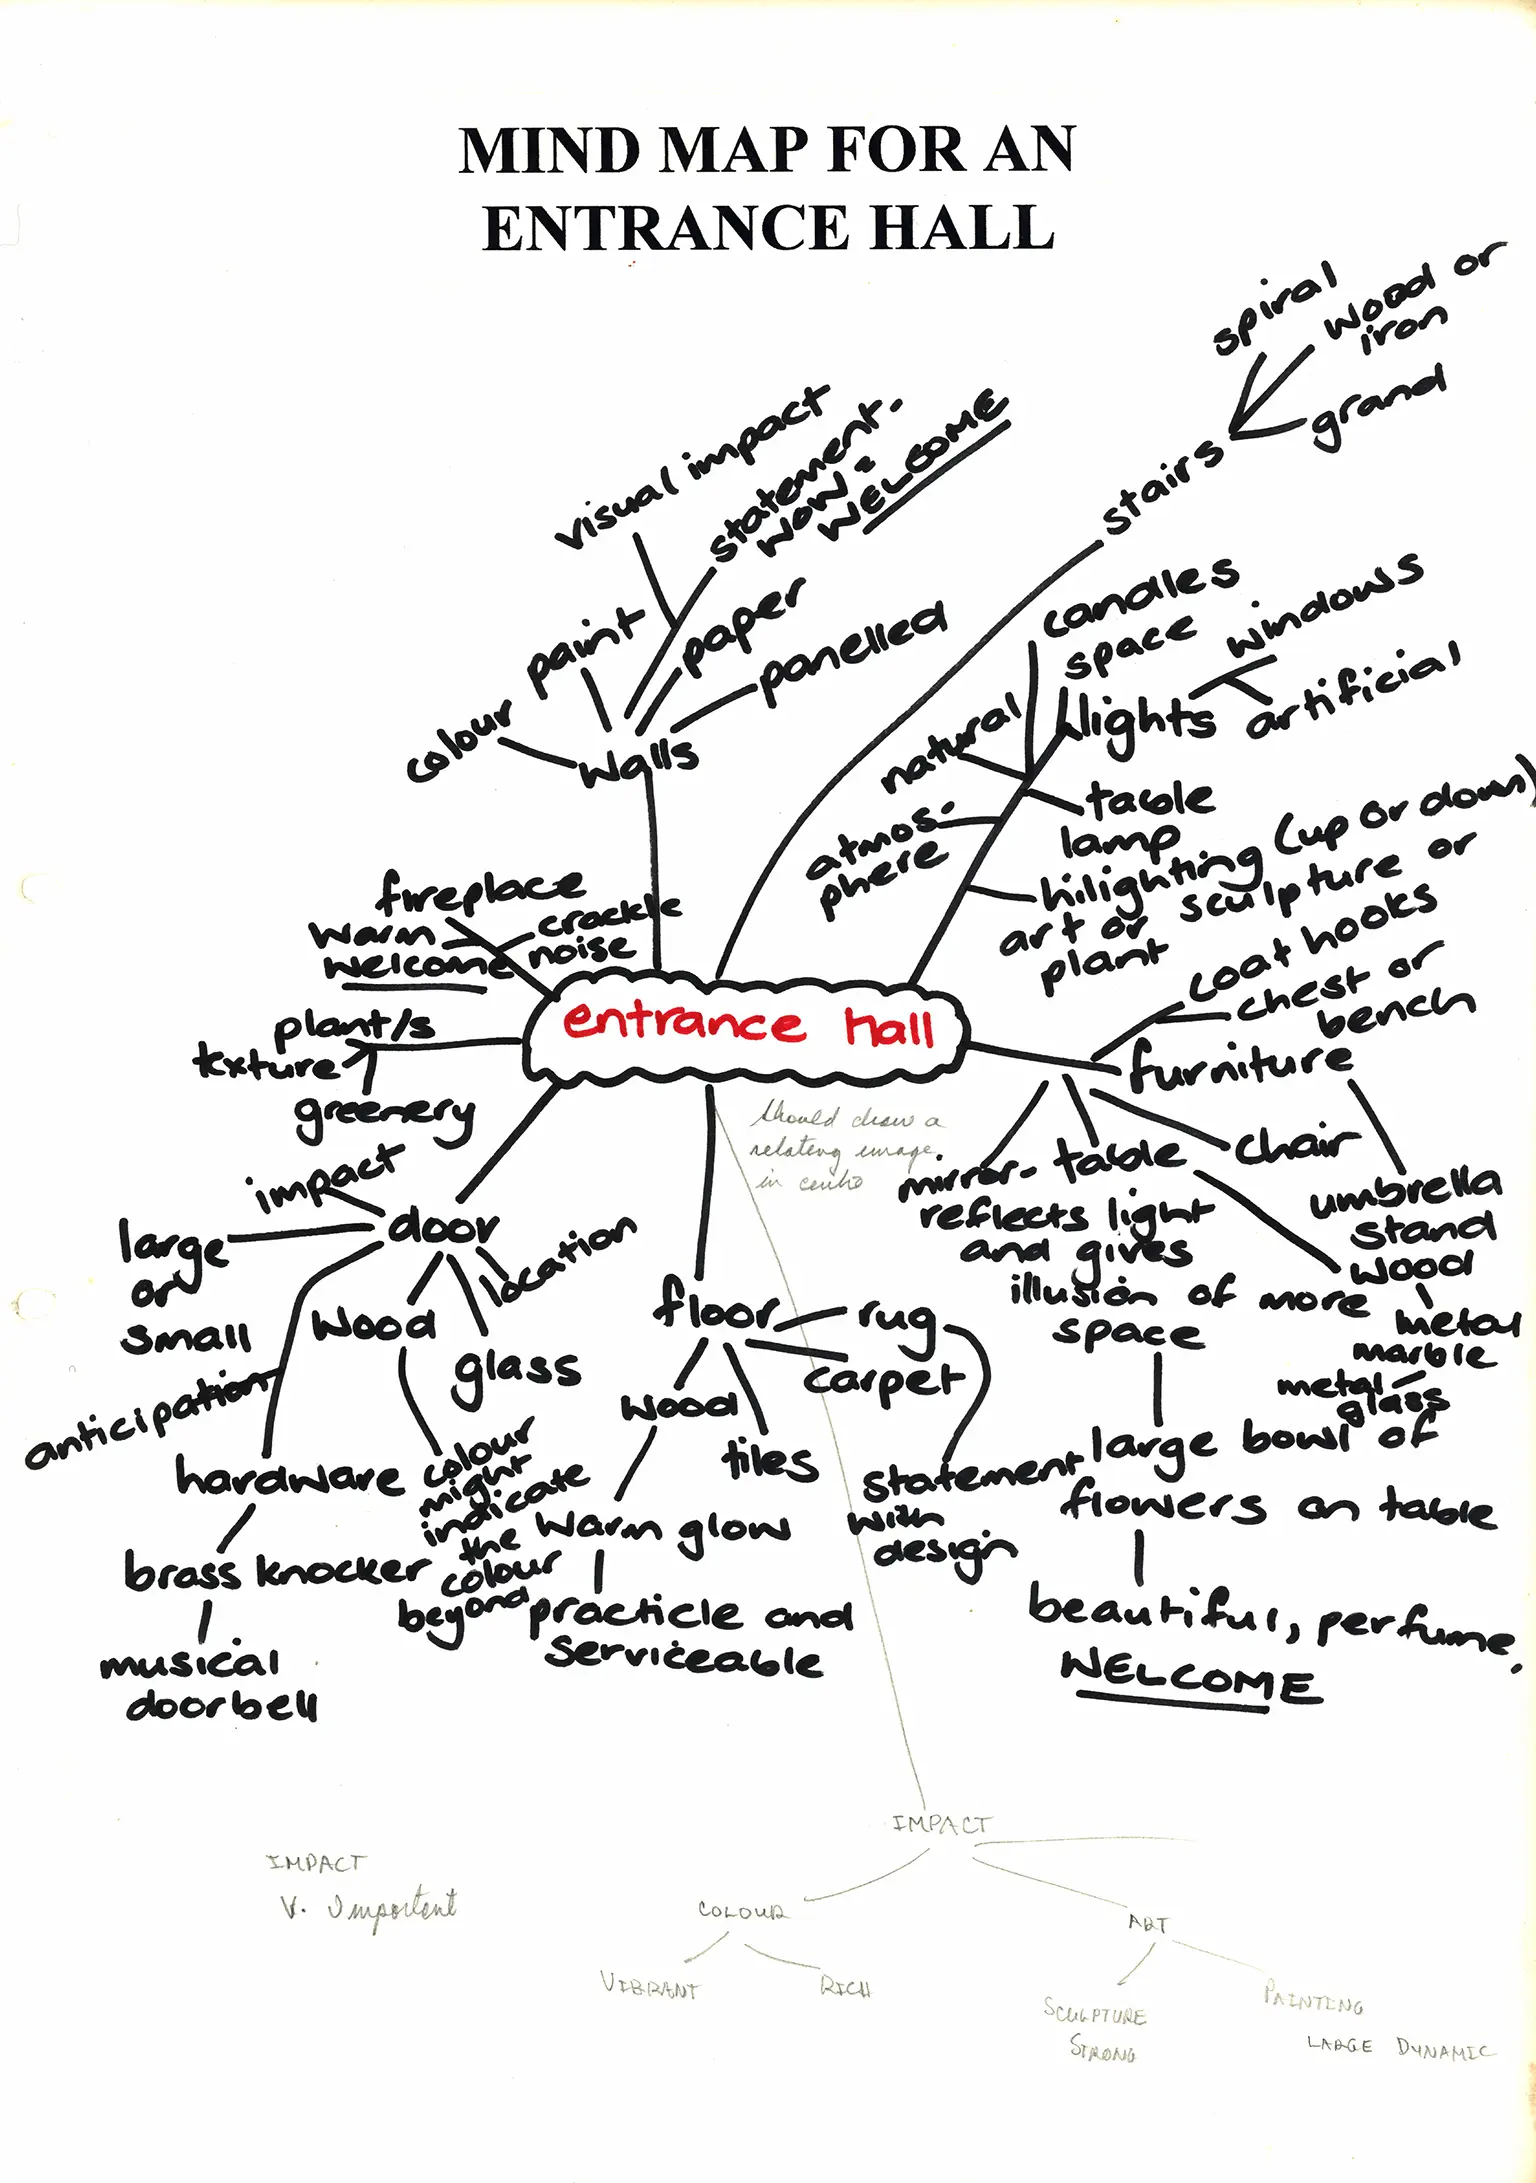 MIND MAP FOR AN
ENTRANCE HALL
spiral
wood or
iron
grand
stairs
visual impact
statement.
wow =
WELCOME
paint
paper
panelled
colour
walls
candles
space
windows
natural
lights
artificial
atmos-
phere
table
lamp
hilighting (up or down)
art or sculpture or
plant
fireplace
warm
welcome
crackle
noise
coat hooks
chest or
bench
entrance hall
furniture
plant/s
texture
greenery
should draw a
relating image
in centre
chair
umbrella
stand
mirror-
reflects light
and gives
illusion of more
space
table
wood
metal
marble
metal
glass
impact
door
large
or
small
location
wood
glass
anticipation
hardware
colour
might
indicate
the
colour
beyond
brass knocker
musical
doorbell
floor
rug
carpet
wood
tiles
statement
with
design
warm glow
practicle and
serviceable
large bowl of
flowers on table
beautiful, perfume,
WELCOME
IMPACT
IMPACT
V. Important
COLOUR
ART
VIBRANT
RICH
SCULPTURE
STRONG
PAINTING
LARGE DYNAMIC